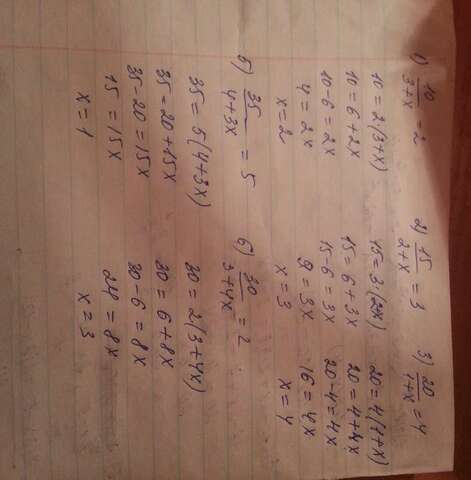 1) 10/3+x = 2
10 = 2(3+x)
10 = 6+2x
10-6=2x
4=2x
x=2
2) 15/2+x = 3
15=3(2+x)
15=6+3x
15-6=3x
9=3x
x=3
3) 20/1+x = 4
20=4(1+x)
20=4+4x
20-4=4x
16=4x
x=4
5) 35/4+3x = 5
35=5(4+3x)
35=20+15x
35-20=15x
15=15x
x=1
6) 30/3+4x = 2
30=2(3+4x)
30=6+8x
30-6=8x
24=8x
x=3